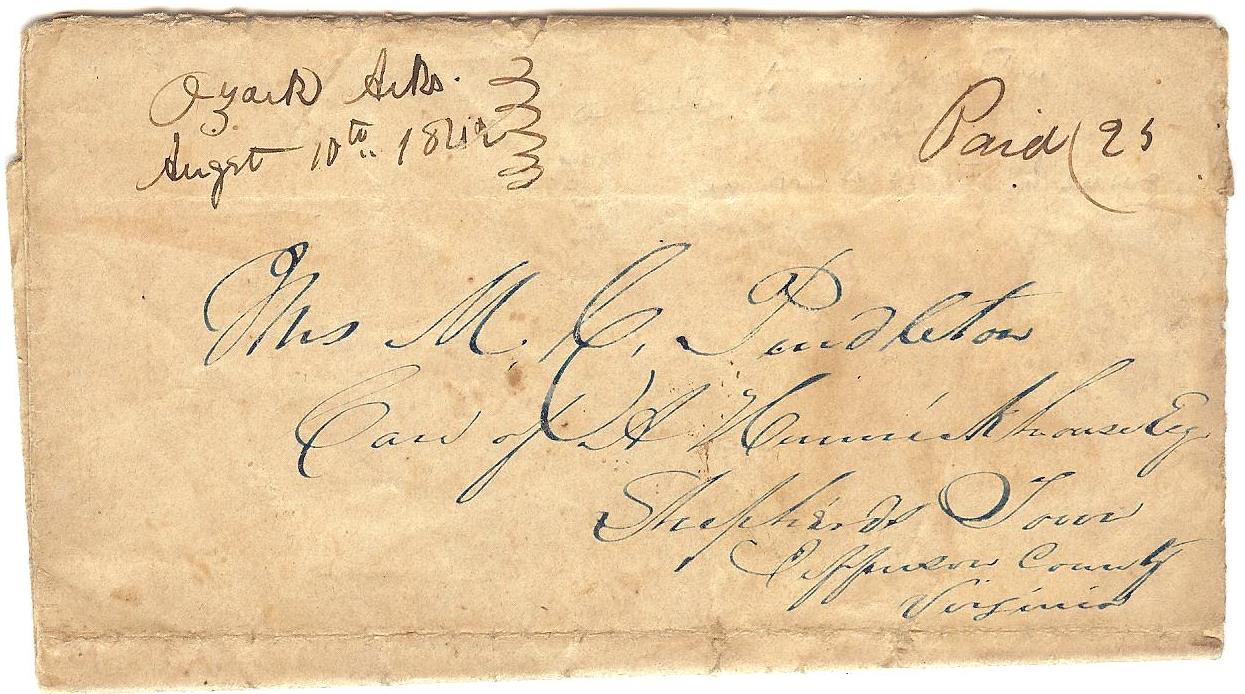 Ozark Arks.
Augst 10th 184
Paid 25
Mrs M. C. Pendleton
Care of
Shepherds Town
Jefferson County
Virginia